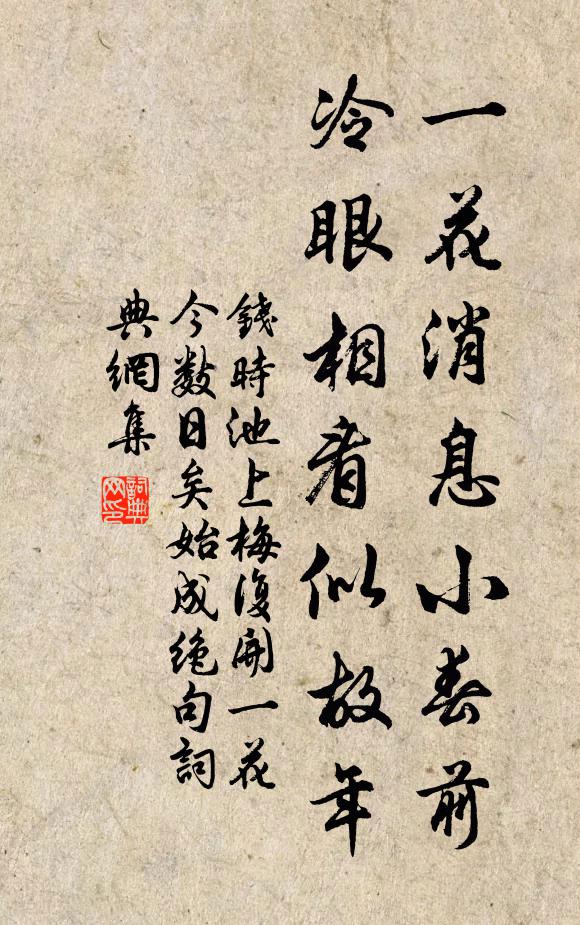 一花消息小春前
冷眼相看似故年
錢時池上梅復開一花
今數日矣始成絕句詞
典網集
詞典網印